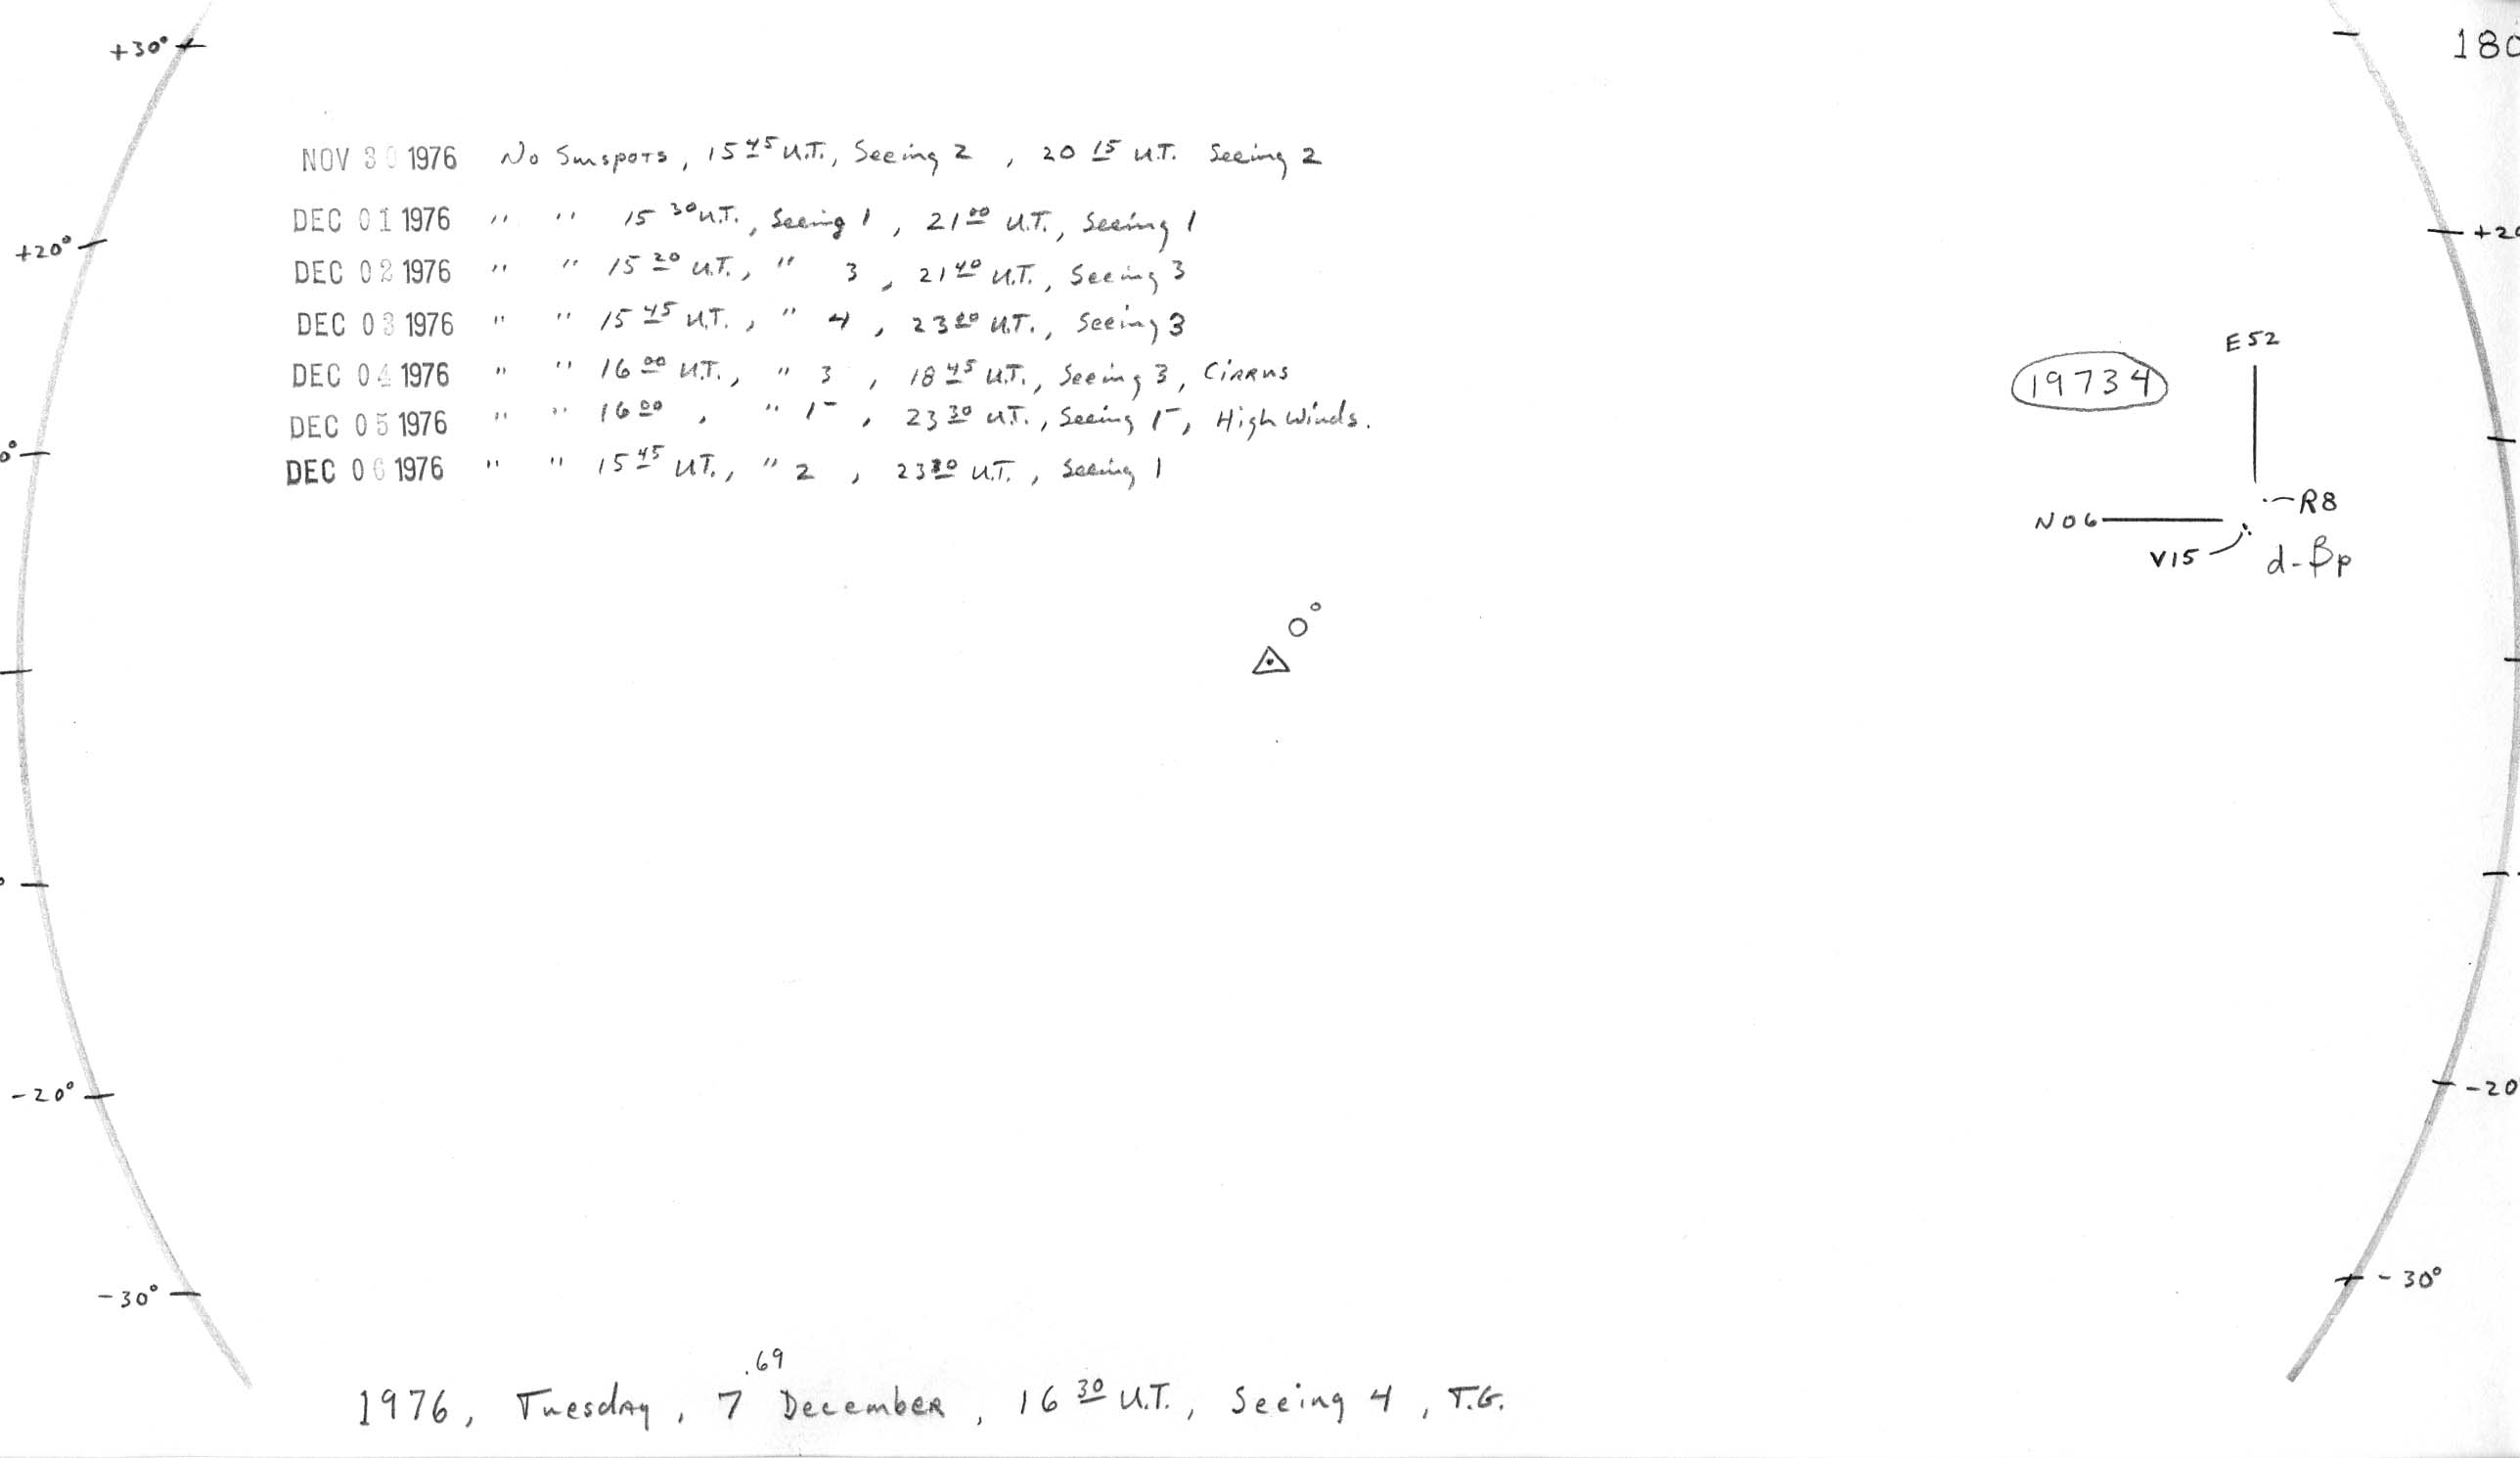 +30° 180
NOV 30 1976 No Sunspots, 15 45 U.T., Seeing 2, 20 15 U.T. Seeing 2
DEC 01 1976 " " 15 30 U.T., Seeing 1, 21 00 U.T., Seeing 1
+20° +20
DEC 02 1976 " " 15 20 U.T., " 3, 21 40 U.T., Seeing 3
DEC 03 1976 " " 15 45 U.T., " 4, 23 00 U.T., Seeing 3
E52
DEC 04 1976 " " 16 00 U.T., " 3, 18 45 U.T., Seeing 3, Cirrus
19734
DEC 05 1976 " " 16 00, " 1-, 23 30 U.T., Seeing 1-, High Winds.
DEC 06 1976 " " 15 45 U.T., " 2, 23 U.T., Seeing 1
R8
N06
V15 d-βp
-20° -20
-30° -30°
.69
1976, Tuesday, 7 December, 16 30 U.T., Seeing 4, T.G.